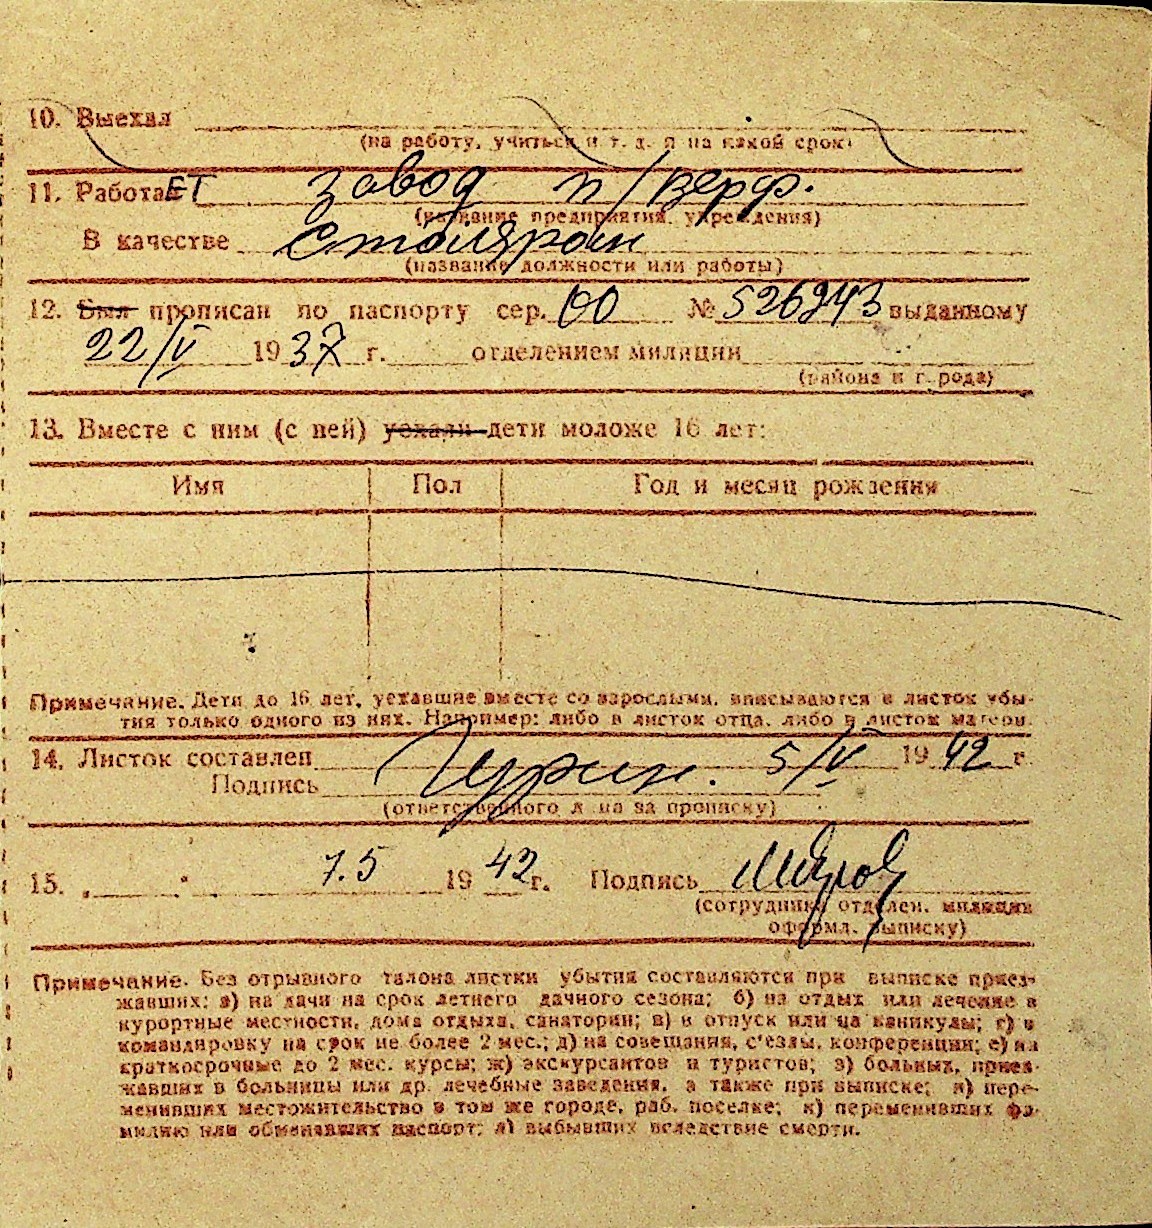 10. Выехал
(на работу, учиться и т. д. и на какой срок)
11. РаботаЕТ завод п/верф.
(название предприятия, учреждения)
В качестве столяром
(название должности или работы)
12. Был прописан по паспорту сер. ОО № 526243 выданному
22/V 1937 г. отделением милиции
(района и города)
13. Вместе с ним (с ней) уехали дети моложе 16 лет:
Имя Пол Год и месяц рождения
Примечание. Дети до 16 лет, уехавшие вместе со взрослыми, вписываются в листок убы-
тия только одного из них. Например: либо в листок отца, либо в листок матери.
14. Листок составлен 5/V 1942 г.
Подпись
(ответственного лица за прописку)
15. 7.5 1942 г. Подпись
(сотрудника отделен. милиции
оформл. выписку)
Примечание. Без отрывного талона листки убытия составляются при выписке приез-
жавших: а) на дачи на срок летнего дачного сезона; б) на отдых или лечение в
курортные местности, дома отдыха, санатории; в) в отпуск или на каникулы; г) в
командировку на срок не более 2 мес.; д) на совещания, с'езды, конференции; е) на
краткосрочные до 2 мес. курсы; ж) экскурсантов и туристов; з) больных, приез-
жавших в больницы или др. лечебные заведения, а также при выписке; и) пере-
менивших местожительство в том же городе, раб. поселке; к) переменивших фа-
милию или обменявших паспорт; л) выбывших вследствие смерти.